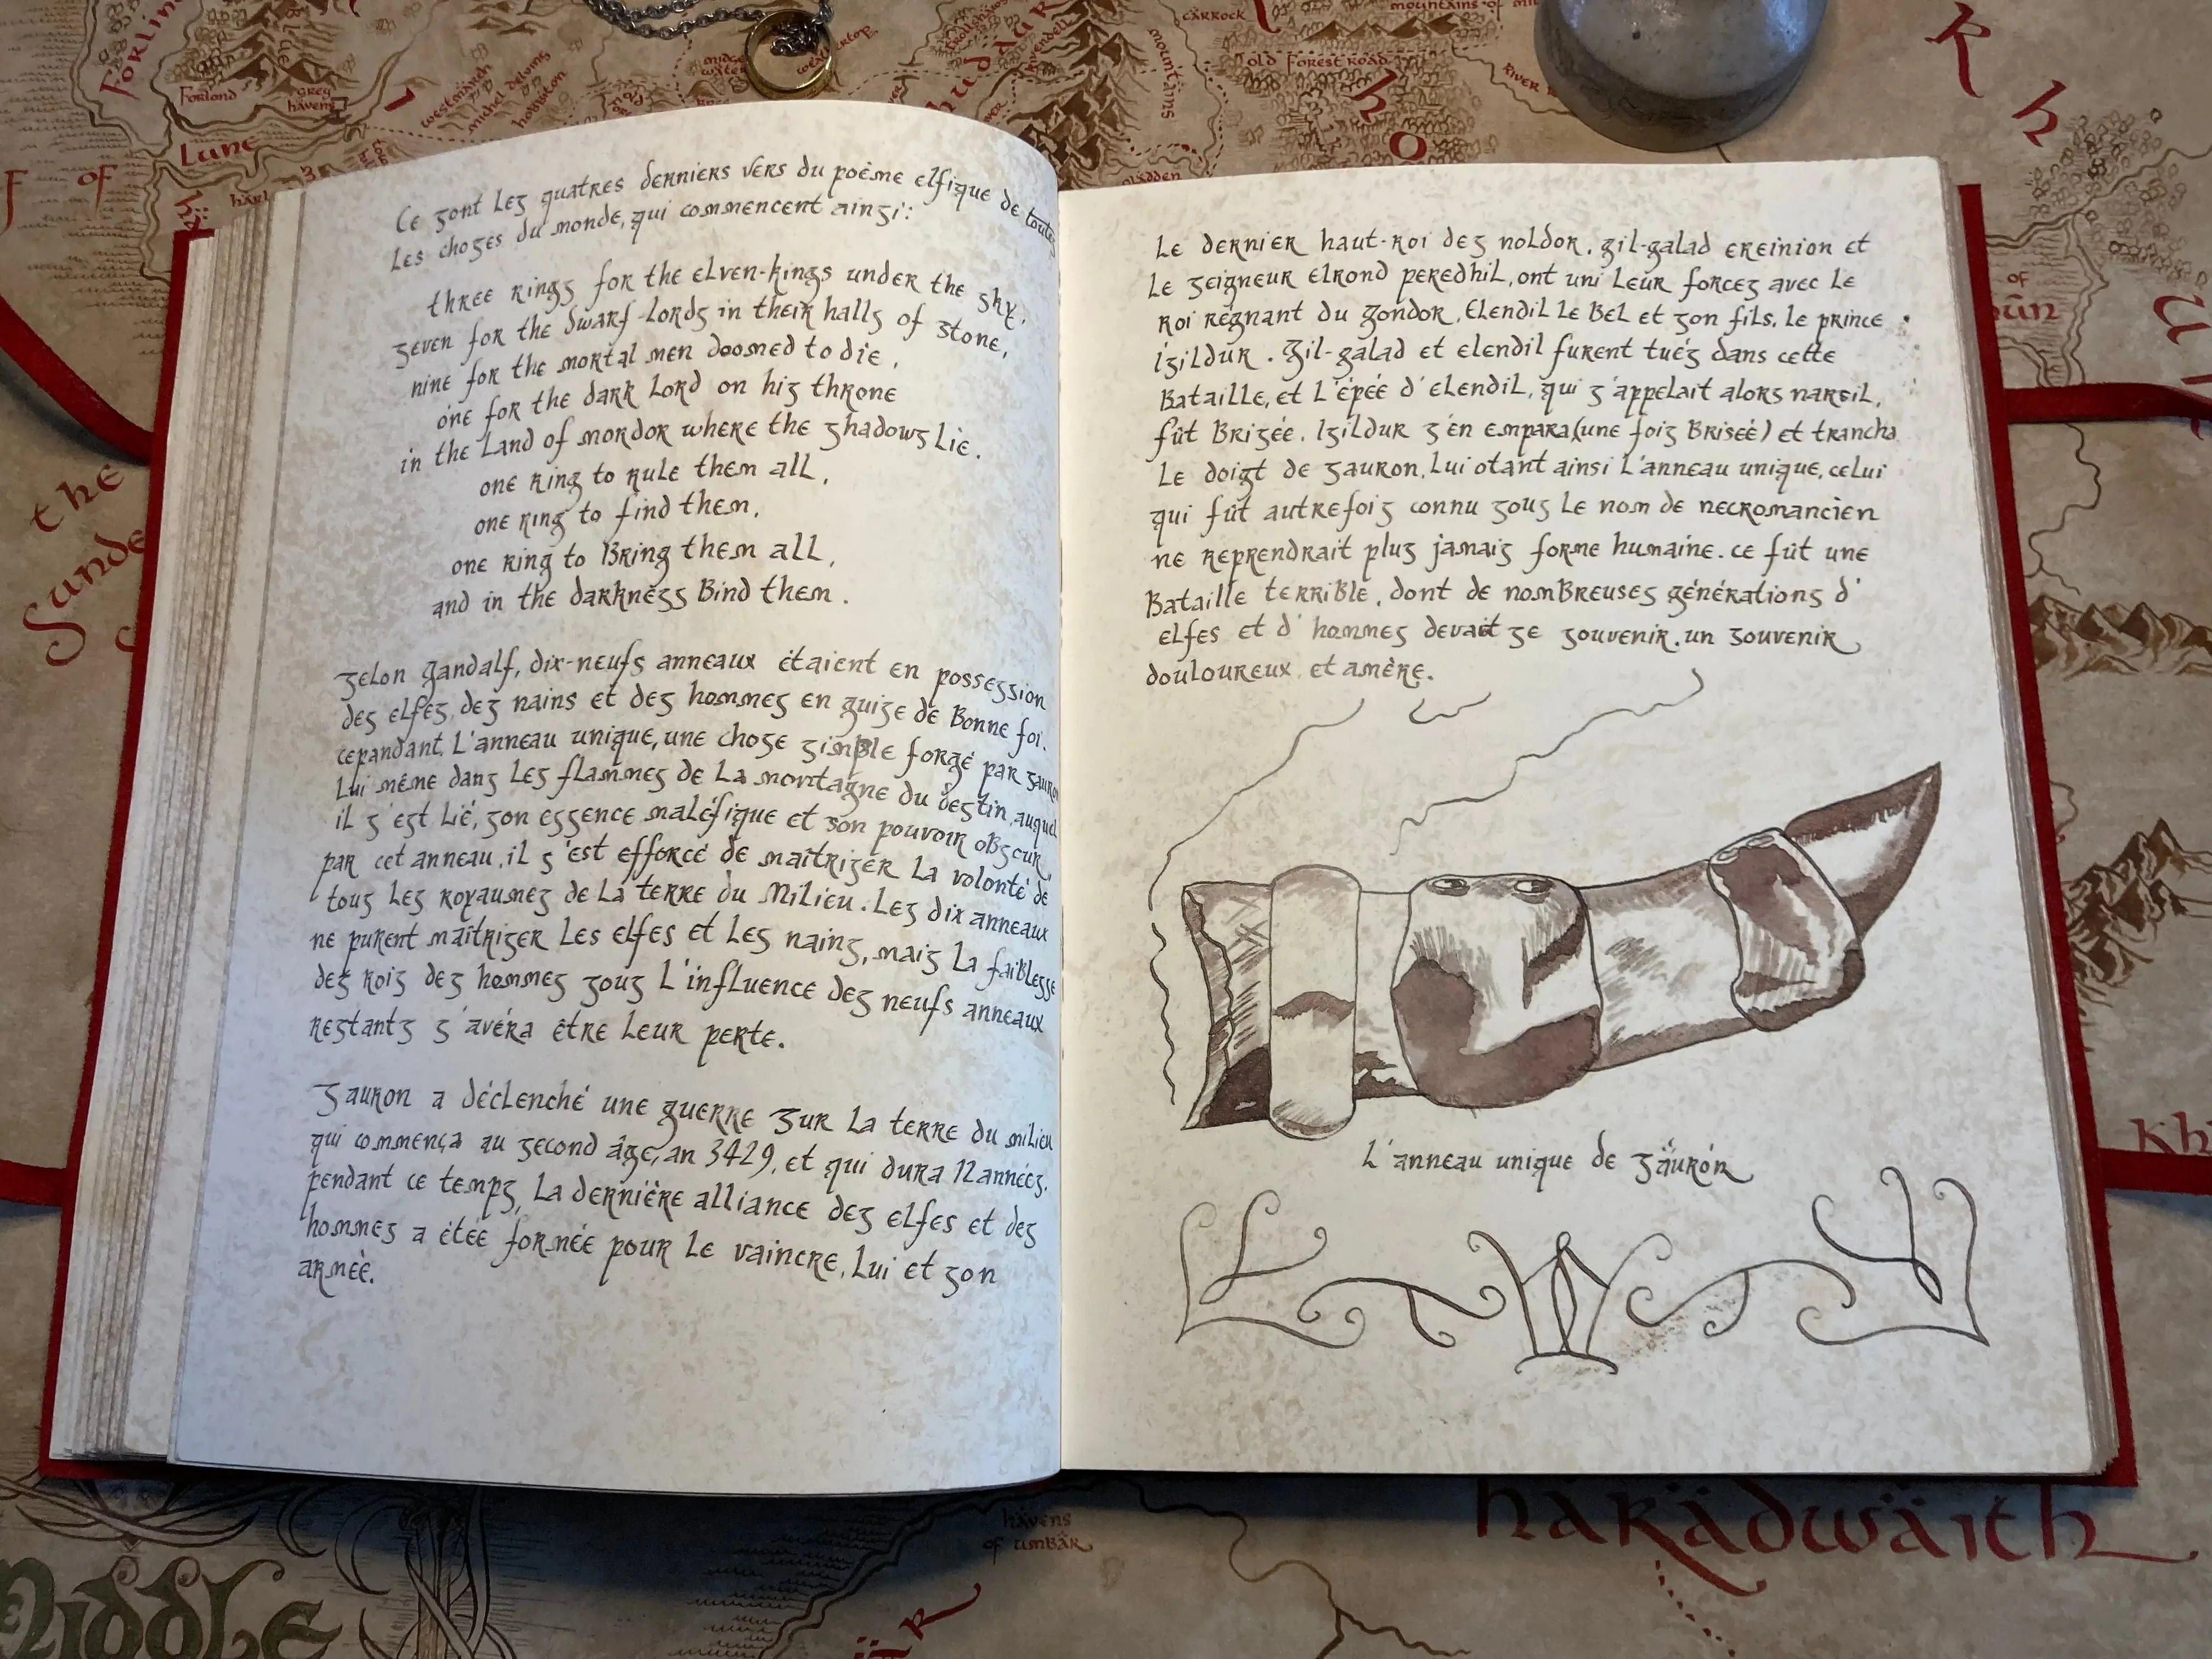 Forlin
Forlond
Grey
havens
Lune
F OF
harl
westmarch
michel delving
hobbiton
weathertop
trollshaws
Rivendell
mountains
carrock
mountains of mi
old Forest road
River R
gladden
R
h
K h
o
of
the
Sunde
Kh
havens
of umbar
harädwäith
Middle
Ce sont les quatres derniers vers du poème elfique de toutes
les choses du monde, qui commencent ainsi:
three rings for the elven-kings under the sky,
seven for the dwarf-lords in their halls of stone,
nine for the mortal men doomed to die,
one for the dark lord on his throne
in the land of mordor where the shadows lie.
one ring to rule them all,
one ring to find them,
one ring to Bring them all,
and in the darkness Bind them.
Selon gandalf, dix-neufs anneaux étaient en possession
des elfes, des nains et des hommes en guise de Bonne foi.
cepandant, l'anneau unique, une chose simple forgé par sauron
lui même dans les flammes de la montagne du destin, auquel
il s'est lié, son essence maléfique et son pouvoir obscur,
par cet anneau, il s'est efforcé de maîtriser la volonté de
tous les royaumes de la terre du Milieu. Les dix anneaux
ne purent maîtriser les elfes et les nains, mais la faiblesse
des rois des hommes sous l'influence des neufs anneaux
restants s'avéra être leur perte.
Sauron a déclenché une guerre sur la terre du milieu
qui commença au second âge, an 3429, et qui dura 12 années.
pendant ce temps, la dernière alliance des elfes et des
hommes a étée formée pour le vaincre, lui et son
armée.
Le dernier haut-roi des noldor, gil-galad ereinion et
le seigneur elrond peredhil, ont uni leur forces avec le
roi règnant du gondor, Elendil le Bel et son fils, le prince
isildur. Gil-galad et elendil furent tués dans cette
Bataille, et l'épée d'elendil, qui s'appelait alors narsil,
fût Brisée. Isildur s'en empara (une fois Brisée) et trancha
le doigt de sauron, lui otant ainsi l'anneau unique, celui
qui fût autrefois connu sous le nom de necromancien
ne reprendrait plus jamais forme humaine. ce fût une
Bataille terrible, dont de nombreuses générations d'
elfes et d'hommes devait se souvenir. un souvenir
douloureux, et amère.
L'anneau unique de säurón